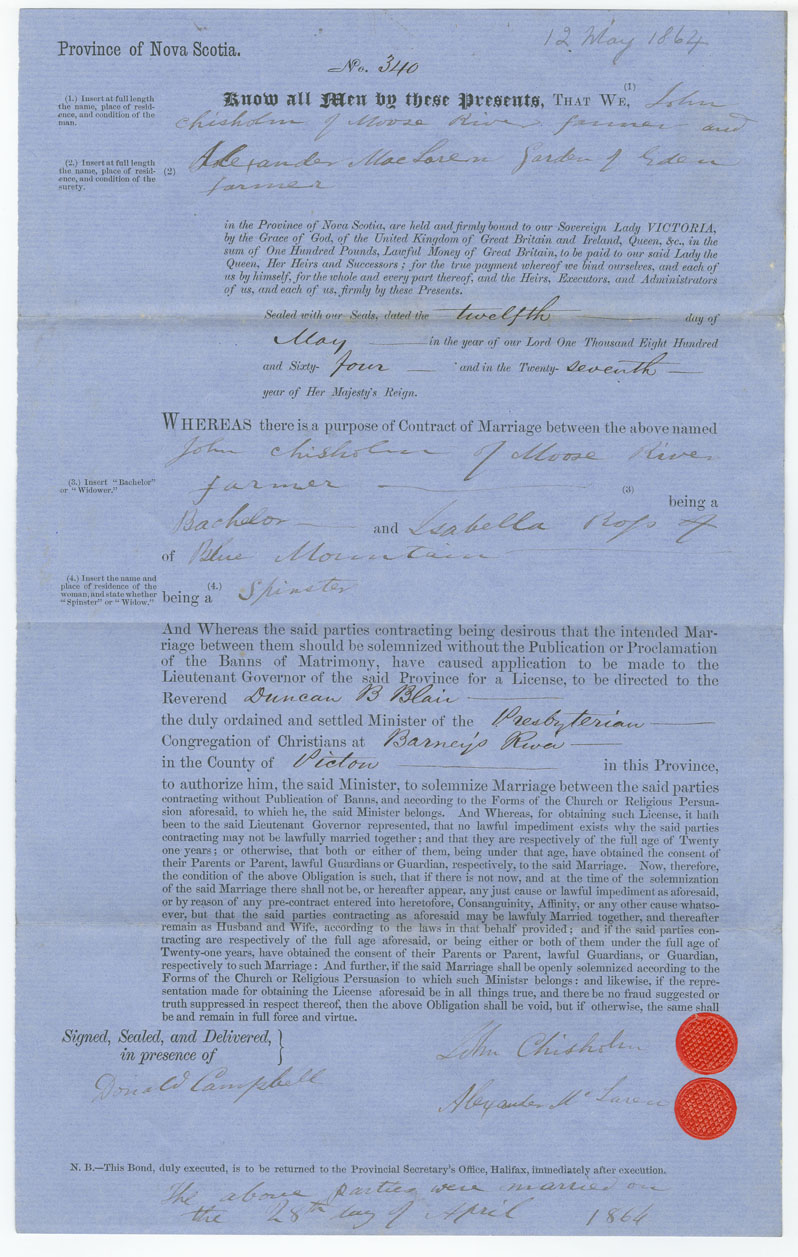 12 May 1864
Province of Nova Scotia.
No. 340
(1.) Insert at full length
the name, place of resid-
ence, and condition of the
man.
Know all Men by these Presents, THAT WE, (1) John
Chisholm of Moose River farmer and
(2.) Insert at full length
the name, place of resid-
ence, and condition of the
surety.
(2) Alexander MacLaren Garden of Eden
farmer
in the Province of Nova Scotia, are held and firmly bound to our Sovereign Lady VICTORIA,
by the Grace of God, of the United Kingdom of Great Britain and Ireland, Queen, &c., in the
sum of One Hundred Pounds, Lawful Money of Great Britain, to be paid to our said Lady the
Queen, Her Heirs and Successors; for the true payment whereof we bind ourselves, and each of
us by himself, for the whole and every part thereof, and the Heirs, Executors, and Administrators
of us, and each of us, firmly by these Presents.
Sealed with our Seals, dated the twelfth day of
May in the year of our Lord One Thousand Eight Hundred
and Sixty- four and in the Twenty- seventh
year of Her Majesty's Reign.
WHEREAS there is a purpose of Contract of Marriage between the above named
John Chisholm of Moose River
(3.) Insert "Bachelor"
or "Widower."
farmer (3) being a
Bachelor and Isabella Ross of
of Blue Mountain
(4.) Insert the name and
place of residence of the
woman, and state whether
"Spinster" or "Widow."
being a (4.) Spinster
And Whereas the said parties contracting being desirous that the intended Mar-
riage between them should be solemnized without the Publication or Proclamation
of the Banns of Matrimony, have caused application to be made to the
Lieutenant Governor of the said Province for a License, to be directed to the
Reverend Duncan B Blair
the duly ordained and settled Minister of the Presbyterian
Congregation of Christians at Barney's River
in the County of Pictou in this Province,
to authorize him, the said Minister, to solemnize Marriage between the said parties
contracting without Publication of Banns, and according to the Forms of the Church or Religious Persua-
sion aforesaid, to which he, the said Minister belongs. And Whereas, for obtaining such License, it hath
been to the said Lieutenant Governor represented, that no lawful impediment exists why the said parties
contracting may not be lawfully married together; and that they are respectively of the full age of Twenty
one years; or otherwise, that both or either of them, being under that age, have obtained the consent of
their Parents or Parent, lawful Guardians or Guardian, respectively, to the said Marriage. Now, therefore,
the condition of the above Obligation is such, that if there is not now, and at the time of the solemnization
of the said Marriage there shall not be, or hereafter appear, any just cause or lawful impediment as aforesaid,
or by reason of any pre-contract entered into heretofore, Consanguinity, Affinity, or any other cause whatso-
ever, but that the said parties contracting as aforesaid may be lawfuly Married together, and thereafter
remain as Husband and Wife, according to the laws in that behalf provided; and if the said parties con-
tracting are respectively of the full age aforesaid, or being either or both of them under the full age of
Twenty-one years, have obtained the consent of their Parents or Parent, lawful Guardians, or Guardian,
respectively to such Marriage: And further, if the said Marriage shall be openly solemnized according to the
Forms of the Church or Religious Persuasion to which such Minister belongs: and likewise, if the repre-
sentation made for obtaining the License aforesaid be in all things true, and there be no fraud suggested or
truth suppressed in respect thereof, then the above Obligation shall be void, but if otherwise, the same shall
be and remain in full force and virtue.
Signed, Sealed, and Delivered,
in presence of
John Chisholm
Donald Campbell
Alexander McLaren
N. B.—This Bond, duly executed, is to be returned to the Provincial Secretary's Office, Halifax, immediately after execution.
The above parties were married on
the 28th day of April 1864